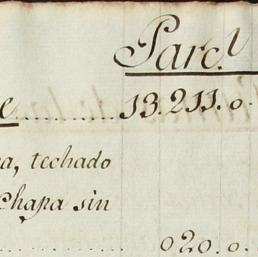 Parcl.
e.......... 13.211.0.
a, techado
chapa sin
020.0.